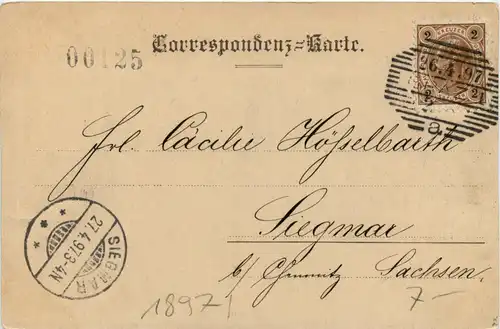 00125
Correspondenz=Karte.
2 KREUZER 2
26.4.97
2 2
8/1
Frl. Cäcilie Hößelbarth
Siegmar
b/ Chemnitz Sachsen.
SIEGMAR
27.4.97.3-4N
1897
7-